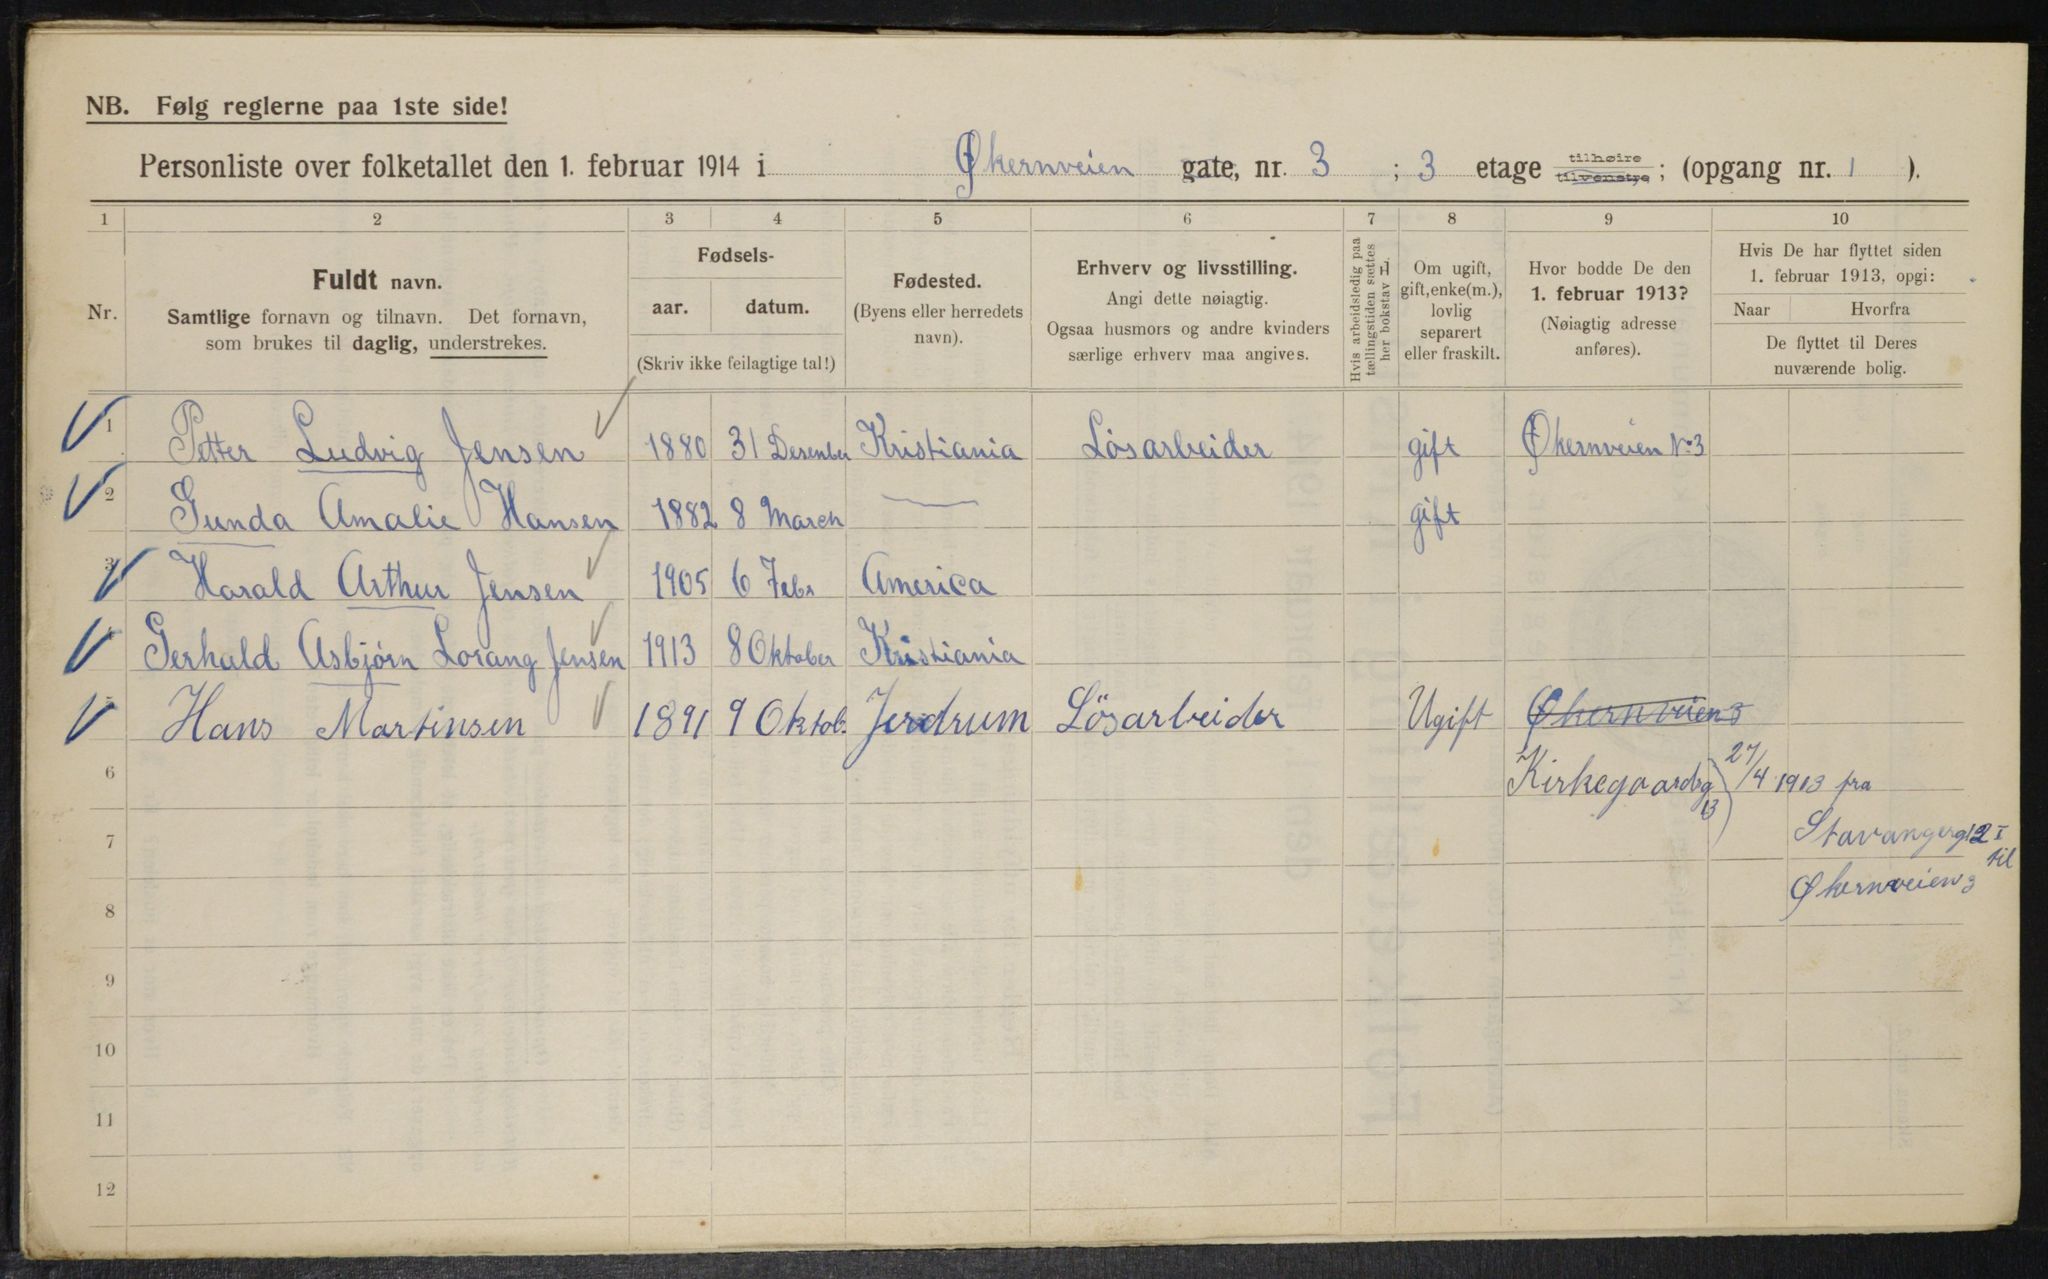 NB. Følg reglerne paa 1ste side!
Personliste over folketallet den 1. februar 1914 i Økernveien gate, nr. 3 ; 3 etage tilhøire tilvenstre; (opgang nr. 1 ).
1 2 3 4 5 6 7 8 9 10
Nr.
Fuldt navn.
Samtlige fornavn og tilnavn. Det fornavn,
som brukes til daglig, understrekes.
Fødsels-
aar. datum.
(Skriv ikke feilagtige tal!)
Fødested.
(Byens eller herredets
navn).
Erhverv og livsstilling.
Angi dette nøiagtig.
Ogsaa husmors og andre kvinders
særlige erhverv maa angives.
Hvis arbeidsledig paa
tællingstiden sættes
her bokstav H.
Om ugift,
gift, enke(m.),
lovlig
separert
eller fraskilt.
Hvor bodde De den
1. februar 1913?
(Nøiagtig adresse
anføres).
Hvis De har flyttet siden
1. februar 1913, opgi:
Naar Hvorfra
De flyttet til Deres
nuværende bolig.
1 Petter Ludvig Jensen 1880 31 Desember Kristiania Løsarbeider gift Økernveien No 3
2 Gunda Amalie Hansen 1882 8 March — gift
3 Harald Arthur Jensen 1905 6 Febr America
4 Gerhald Asbjørn Lorang Jensen 1913 8 Oktober Kristiania
5 Hans Martinsen 1891 9 Oktob. Jerdrum Løsarbeider Ugift Økernveien 3
6 Kirkegaardsg 13 27/4 1913 fra
7 Stavangerg 12 I
til
8 Økernveien 3
9
10
11
12